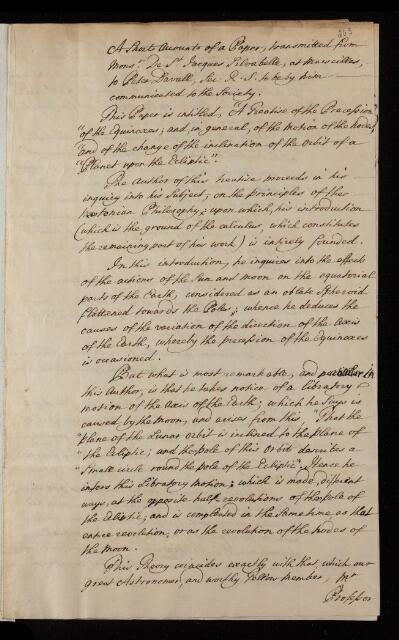 263
A Short Accounts of a Paper, transmitted from
Monsr. De St. Jacques Silvabelle, at Marseilles,
to Peter Davall, Sec. R. S. to be by him
communicated to the Society.
This Paper is intitled, "A Treatise of the Precession
"of the Equinoxes; and, in general, of the Motion of the Nodes,
"and of the change of the inclination of the Orbit of a
"Planet upon the Ecliptic".
The Author of this treatise proceeds in his
inquiry into his Subject, on the principles of the
Newtonian Philosophy; upon which, his introduction
(which is the ground of the calculus, which constitutes
the remaining part of his work) is intirely founded.
In this introduction, he inquires into the effects
of the actions of the Sun and moon on the equatorial
parts of the Earth, considered as an oblate Spheroid
flattened towards the Poles; whence he deduces the
causes of the variation of the direction of the Axis
of the Earth, whereby the precession of the Equinoxes
is occasioned.
But what is most remarkable, and particular in
this Author, is that he takes notice of a libratory
motion of the Axis of the Earth; which he says is
caused by the moon, and arises from this, "That the
"plane of the Lunar orbit is inclined to the plane of
"the Ecliptic; and the pole of this Orbit describes a
"Small circle round the pole of the Ecliptic". Hence he
infers this Libratory motion; which is made, different
ways, at the opposite half revolutions of the pole of
the Ecliptic; and is compleated in the same time, as that
entire revolution, or as the revolution of the nodes of
the Moon.
This Theory coincides exactly with that, which our
great Astronomer, and worthy fellow member, Mr
Professor